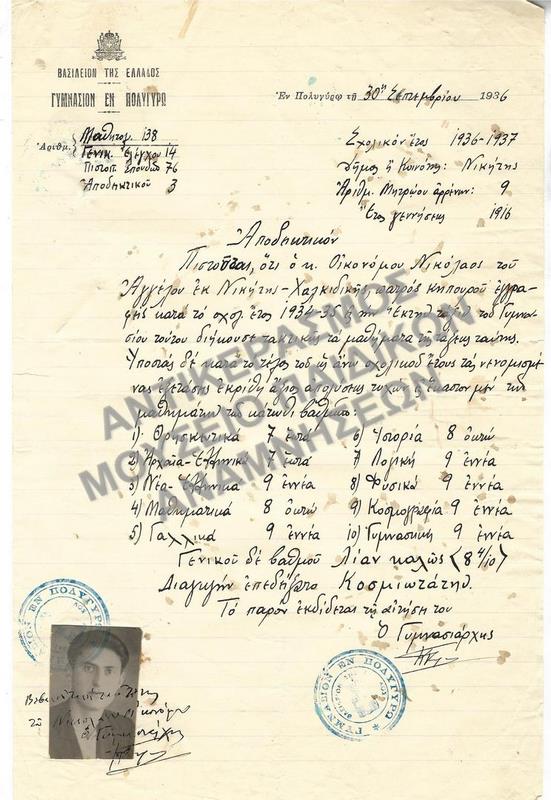 ΒΑΣΙΛΕΙΟΝ ΤΗΣ ΕΛΛΑΔΟΣ
ΓΥΜΝΑΣΙΟΝ ΕΝ ΠΟΛΥΓΥΡΩ
Ἐν Πολυγύρῳ τῇ 30ῃ Σεπτεμβρίου 1936
Ἀριθμ.
Μαθητολ. 138
Γενικ. Ἐλέγχου 14
Πιστοπ. Σπουδῶν 76
Ἀποδεικτικοῦ 3
Σχολικόν ἔτος 1936-1937
Δῆμος ἤ Κοινότης: Νικήτης
Ἀριθμ. Μητρώου ἀρρένων: 9
Ἔτος γεννήσεως 1916
Ἀποδεικτικόν
Πιστοῦται, ὅτι ὁ κ. Οἰκονόμου Νικόλαος τοῦ
Ἀγγέλου ἐκ Νικήτης-Χαλκιδικῆς, πατρός κηπουροῦ ἐγγρα-
φείς κατά τό σχολ. ἔτος 1934-35 εἰς τήν Ἕκτην τάξιν τοῦ Γυμνα-
σίου τούτου διήκουσε τακτικῶς τά μαθήματα τῆς τάξεως ταύτης.
Ὑποστάς δέ κατά τό τέλος τοῦ ὡς ἄνω σχολικοῦ ἔτους τάς νενομισμέ-
νας ἐξετάσεις ἐκρίθη ἄξιος ἀπολύσεως τυχών εἰς ἕκαστον μέν τῶν
μαθημάτων τῶν κάτωθι βαθμῶν:
1). Θρησκευτικά 7 ἑπτά
2) Ἀρχαῖα Ἑλληνικά 7 ἑπτά
3) Νέα Ἑλληνικά 9 ἐννέα
4) Μαθηματικά 8 ὀκτώ
5) Γαλλικά 9 ἐννέα
6) Ἱστορία 8 ὀκτώ
7) Λογική 9 ἐννέα
8) Φυσικά 9 ἐννέα
9) Κοσμογραφία 9 ἐννέα
10) Γυμναστική 9 ἐννέα
Γενικοῦ δέ βαθμοῦ Λίαν καλῶς (8 4/10)
Διαγωγήν ἐπεδείξατο Κοσμιωτάτην.
Τό παρόν ἐκδίδεται τῇ αἰτήσει του
Ὁ Γυμνασιάρχης
ΓΥΜΝΑΣΙΟΝ ΕΝ ΠΟΛΥΓΥΡΩ
ΓΥΜΝΑΣΙΟΝ ΕΝ ΠΟΛΥΓΥΡΩ
τοῦ Νικολάου Οἰκονόμου
ὁ Γυμνασιάρχης
ΜΟΥΣΕΙΟ ΠΑΙΔΙΚΩΝ
ΑΝΑΜΝΗΣΕΩΝ